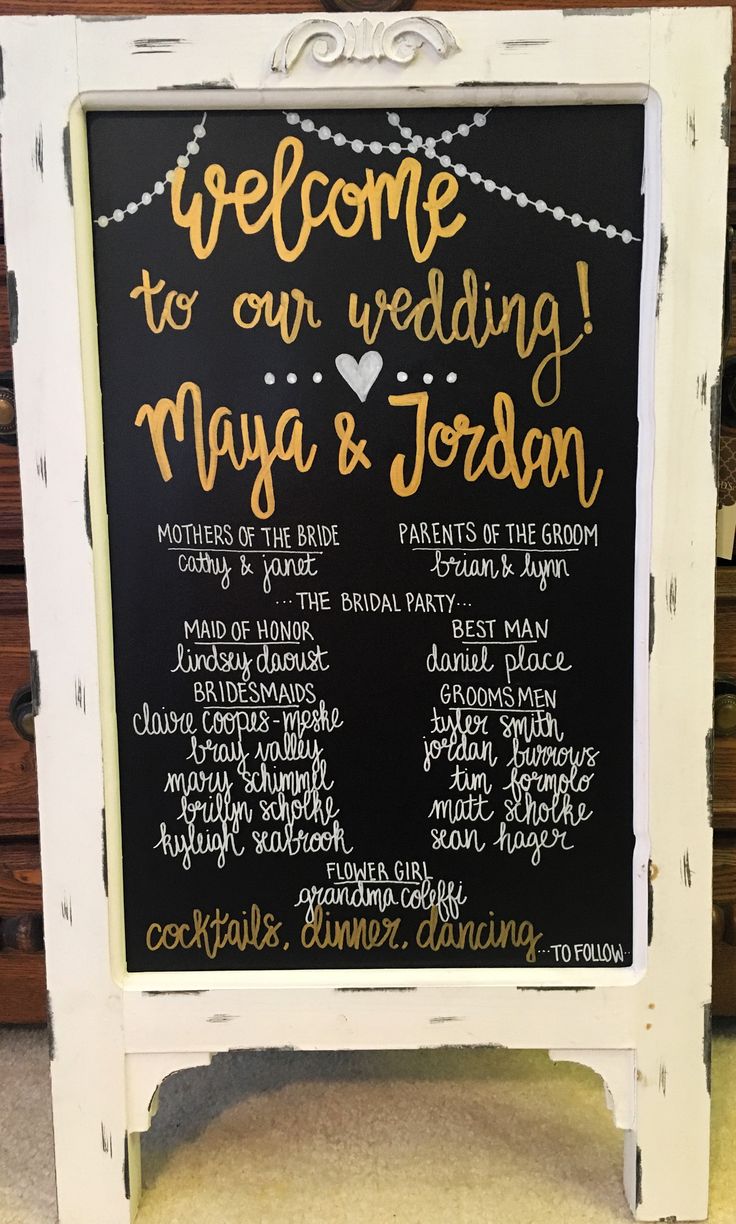 welcome
to our wedding!
Maya & Jordan
MOTHERS OF THE BRIDE
cathy & janet
PARENTS OF THE GROOM
brian & lynn
...THE BRIDAL PARTY...
MAID OF HONOR
lindsey daoust
BEST MAN
daniel place
BRIDESMAIDS
claire coopes-meske
bray valley
mary schimmel
brilyn scholke
kyleigh seabrook
GROOMSMEN
tyler smith
jordan burrows
tim formolo
matt scholke
sean hager
FLOWER GIRL
grandma coleffi
cocktails, dinner, dancing...TO FOLLOW...